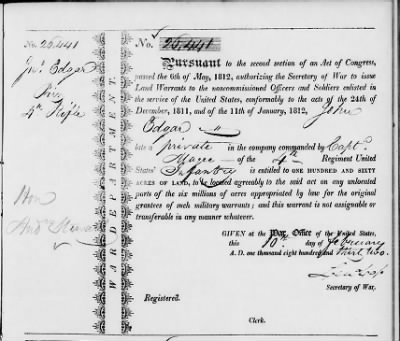 No. 26,441
Jno. Edgar
4th Rifle
Hon
WAR DEPARTMENT.
No. 26,441
Pursuant to the second section of an Act of Congress,
passed the 6th of May, 1812, authorizing the Secretary of War to issue
Land Warrants to the noncommissioned Officers and Soldiers enlisted
in the service of the United States, conformably to the acts of the 24th of
December, 1811, and of the 11th of January, 1812, John
Edgar
late a private in the company commanded by Captn.
Magee of the 4th Regiment United
States' Infantry is entitled to ONE HUNDRED AND SIXTY
ACRES OF LAND, to be located agreeably to the said act on any unlocated
parts of the six millions of acres appropriated by law for the original
grantees of such military warrants; and this warrant is not assignable or
transferable in any manner whatever.
GIVEN at the War Office of the United States,
this 10th day of February
A. D. one thousand eight hundred and thirty two.
Lew Cass
Secretary of War.
Registered.
Clerk.